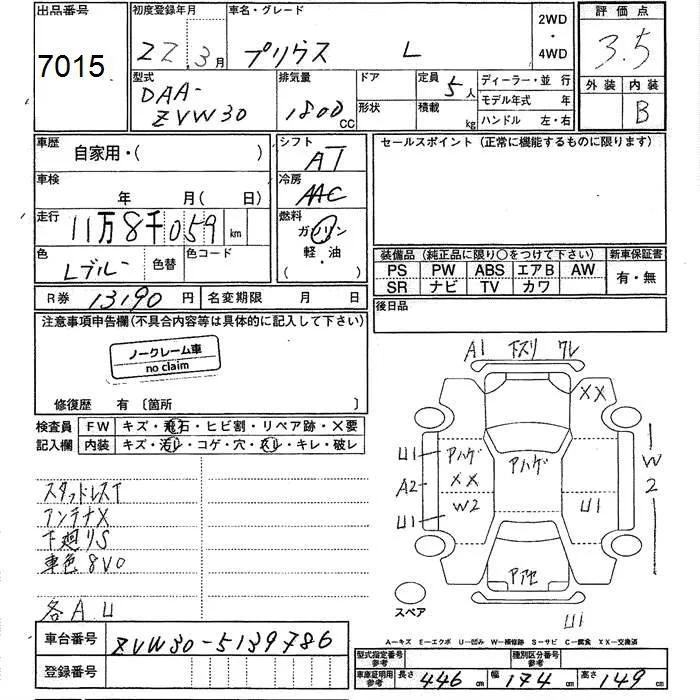 出品番号
7015
初度登録年月
22.3月
車名・グレード
プリウス L
2WD
・
4WD
評価点
3.5
外装 内装
B
型式
DAA-
ZVW30
排気量
1800 CC
ドア
形状
定員 5 人
積載 kg
ディーラー・並 行
モデル年式 年
ハンドル 左・右
車歴
自家用・( )
シフト
AT
セールスポイント (正常に機能するものに限ります)
車検
年 月( 日)
冷房
AAC
走行
11万8千059 km
燃料
ガソリン
軽・油
( )
色
Lブルー
色替
色コード
装備品 (純正品に限り○をつけて下さい)
新車保証書
PS PW ABS エアB AW
有・無
SR ナビ TV カワ
R券 13190 円
名変期限 月 日
後日品
注意事項申告欄(不具合内容等は具体的に記入して下さい)
ノークレーム車
no claim
修復歴 有〔箇所 〕
検査員
記入欄
FW キズ・飛石・ヒビ割・リペア跡・X要
内装 キズ・汚レ・コゲ・穴・スレ・キレ・破レ
スタッドレスT
アンテナX
下廻りS
車色8V0
各A.U
A1 下スリ ワレ
XX
U1
Aハゲ
Aハゲ
A2
XX
W
2
U1
W2
U1
スペア
U1
A−キズ E−エクボ U−凹み W−補修跡 S−サビ C−腐食 XX−交換済
車台番号
ZVW30-5139786
登録番号
型式指定番号
参考
種別区分番号
参考
車庫証明用
参考
長さ 446 cm
幅 174 cm
高さ 149 cm